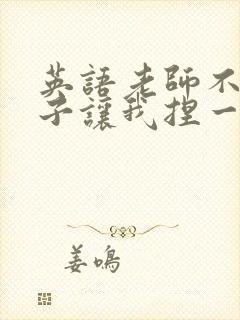 英語老師不
子讓我捏一
姜鳴